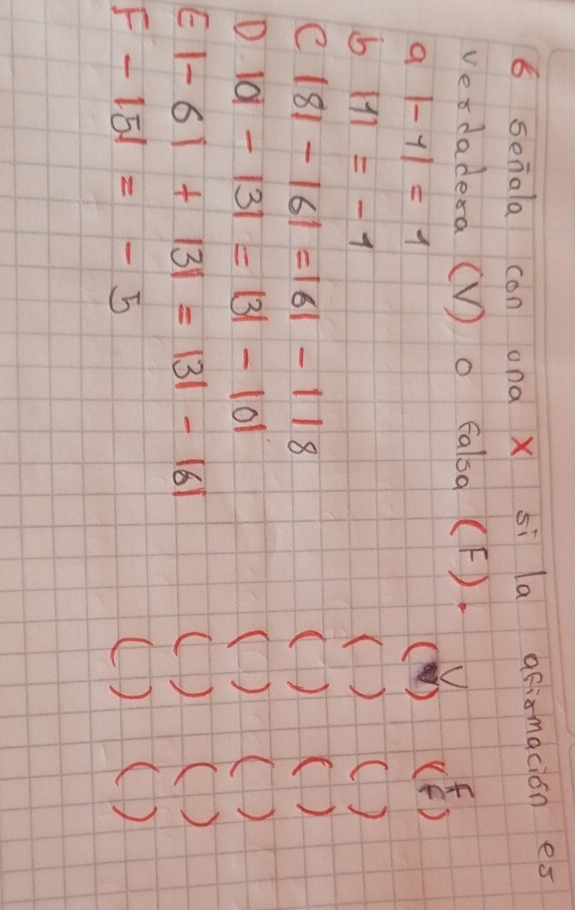 6 señala con una x si la afirmación es
verdadera (V) o falsa (F).
V F
a |-1| = 1 (V) (F)
b |1| = -1 ( ) ( )
C |8| - |6| = |6| - | | 8 ( ) ( )
D |0| - |3| = |3| - |0| ( ) ( )
E |-6| + |3| = |3| - |6| ( ) ( )
F - |5| = - 5 ( ) ( )